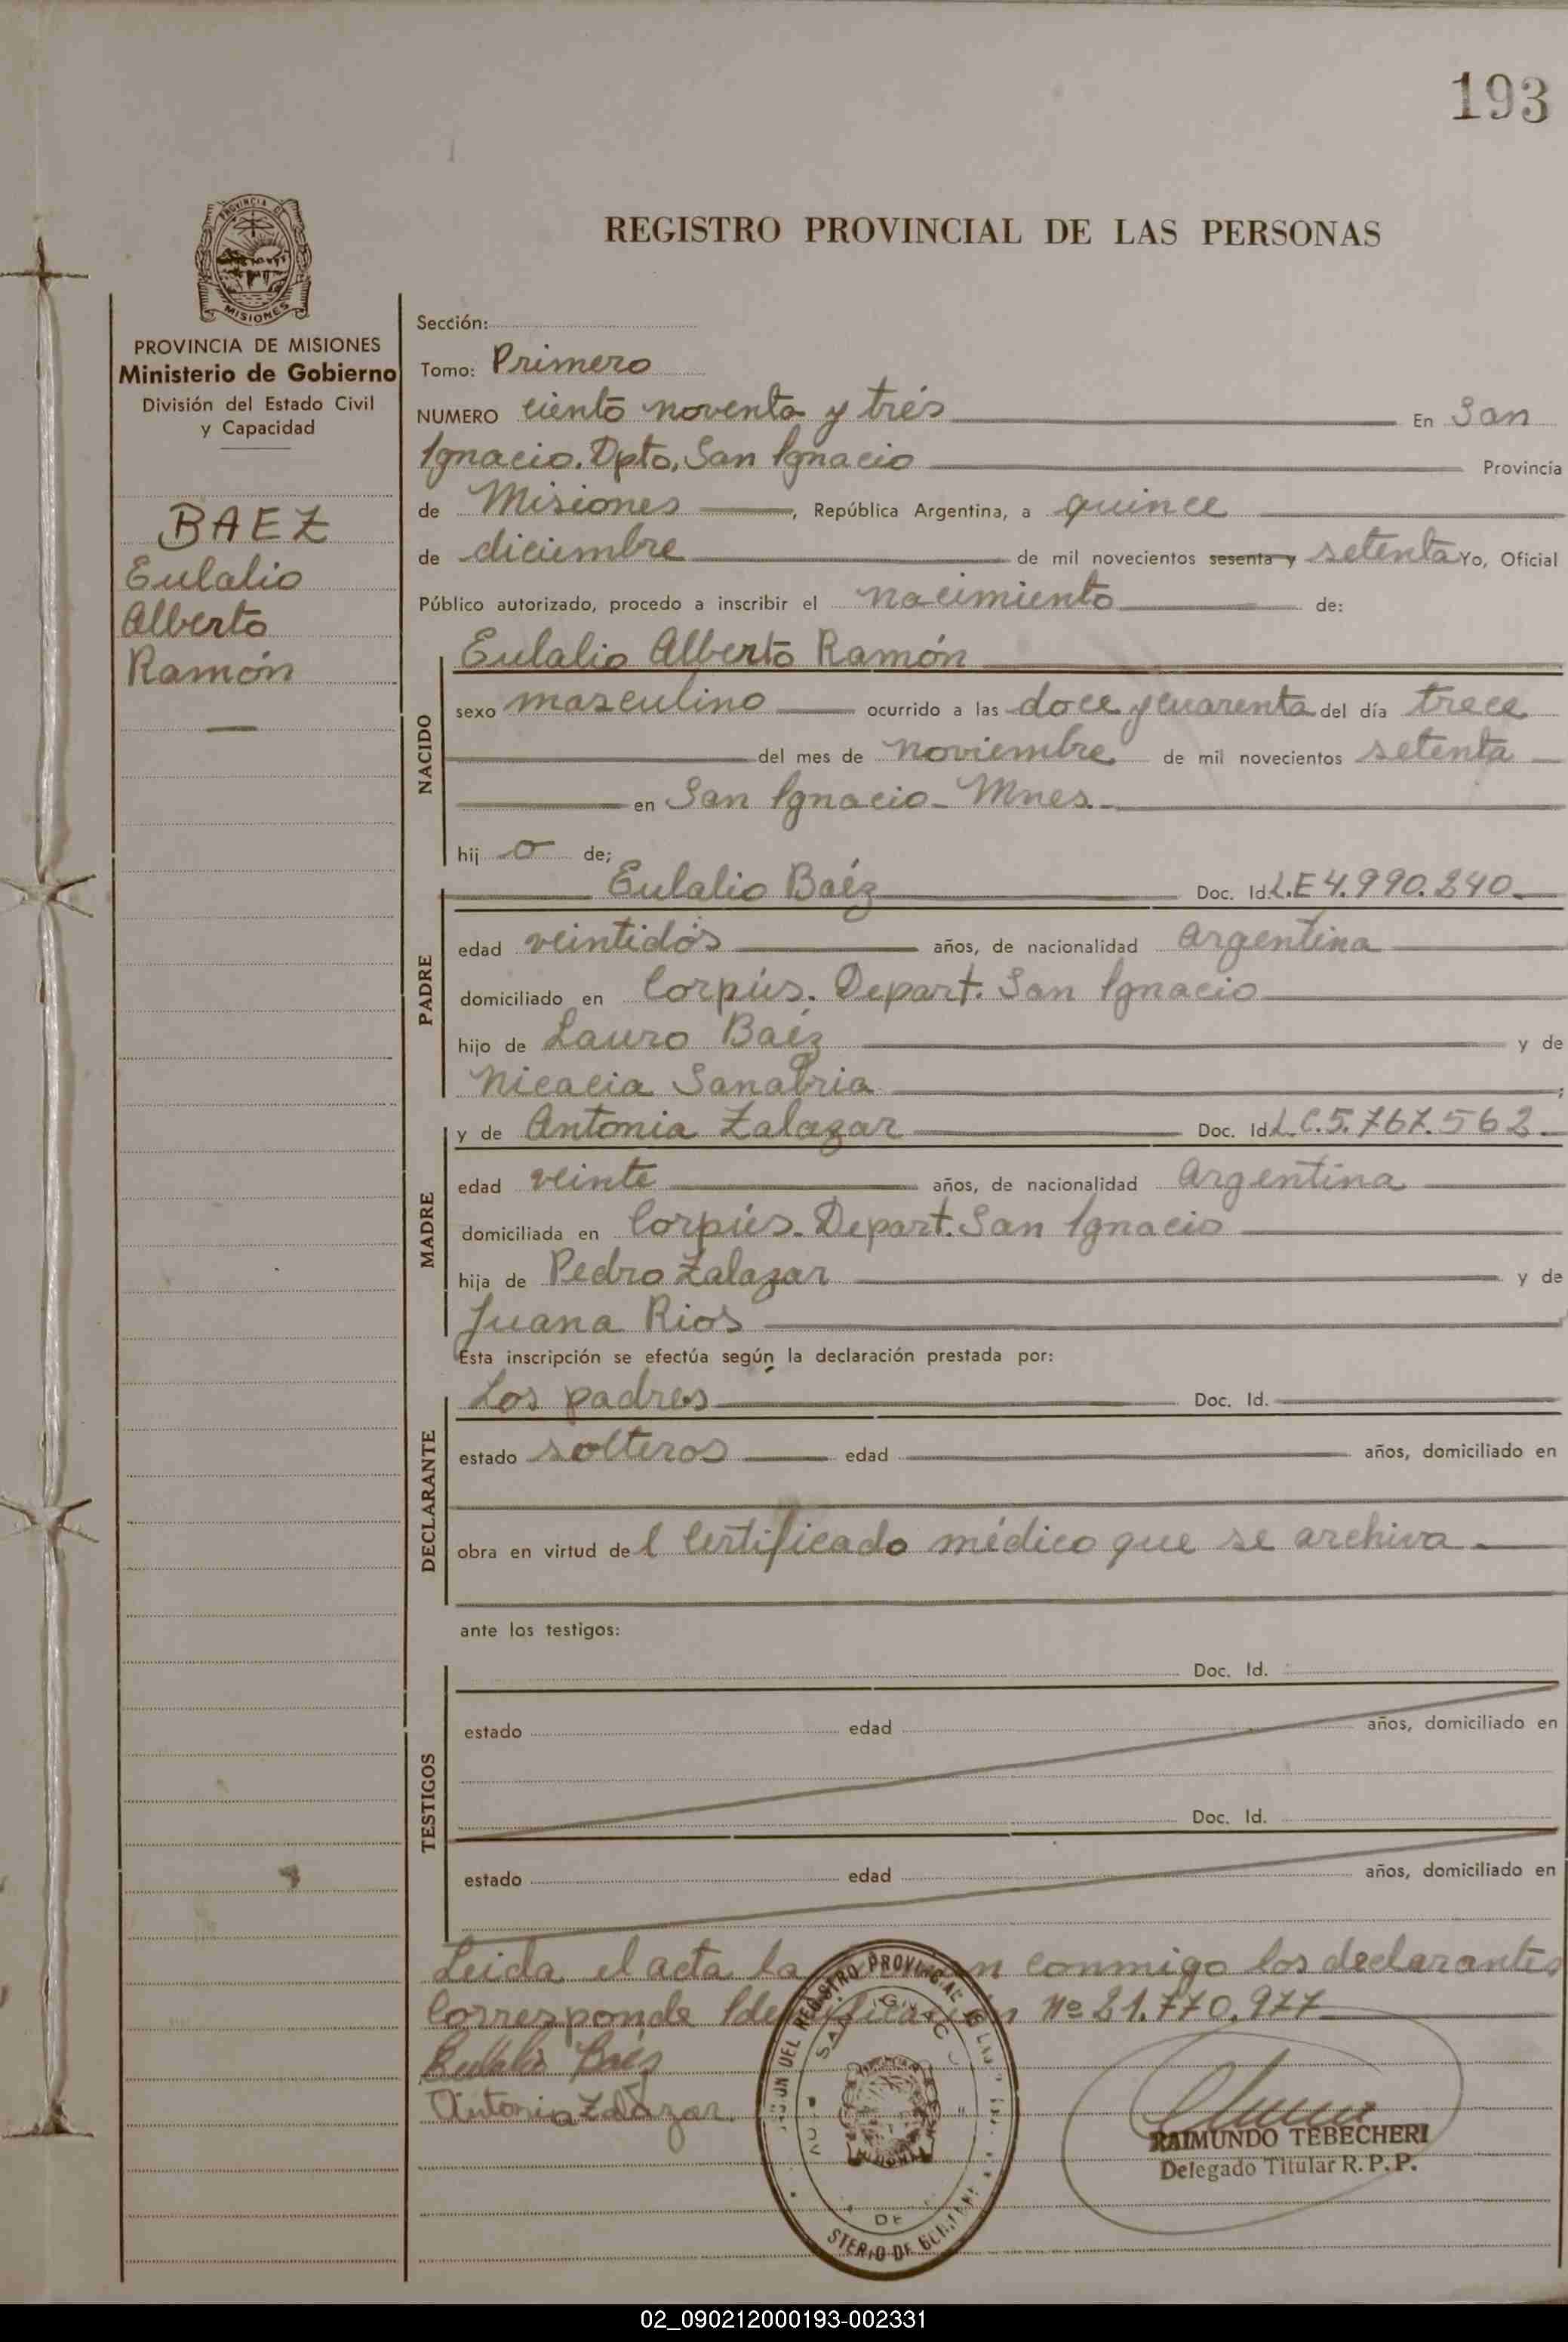 193
PROVINCIA DE
MISIONES
PROVINCIA DE MISIONES
Ministerio de Gobierno
División del Estado Civil
y Capacidad
BAEZ
Eulalio
Alberto
Ramón
REGISTRO PROVINCIAL DE LAS PERSONAS
Sección:
Tomo: Primero
NUMERO ciento noventa y trés En San
Ignacio. Dpto. San Ignacio Provincia
de Misiones, República Argentina, a quince
de diciembre de mil novecientos sesenta y setenta Yo, Oficial
Público autorizado, procedo a inscribir el nacimiento de:
NACIDO
Eulalio Alberto Ramón
sexo masculino ocurrido a las doce y cuarenta del día trece
del mes de noviembre de mil novecientos setenta
en San Ignacio - Mnes.
hij o de;
PADRE
Eulalio Baéz Doc. Id. L.E 4.990.240
edad veintidós años, de nacionalidad argentina
domiciliado en Corpús. Depart. San Ignacio
hijo de Lauro Baéz y de
Nicacia Sanabria ;
MADRE
y de Antonia Zalazar Doc. Id. L.C. 5.767.562
edad veinte años, de nacionalidad argentina
domiciliada en Corpús. Depart. San Ignacio
hija de Pedro Zalazar y de
Juana Rios
Esta inscripción se efectúa según la declaración prestada por:
DECLARANTE
Los padres Doc. Id.
estado solteros edad años, domiciliado en
obra en virtud de l Certificado médico que se archiva
ante los testigos:
TESTIGOS
Doc. Id.
estado edad años, domiciliado en
Doc. Id.
estado edad años, domiciliado en
Leida el acta la conmigo los declarantes
Corresponde Nº 21.770.977
Eulalio Baéz
Antonia Zalazar
RAIMUNDO TEBECHERI
Delegado Titular R. P. P.
DEL REGISTRO PROVINCIAL DE LAS
DE
02_090212000193-002331